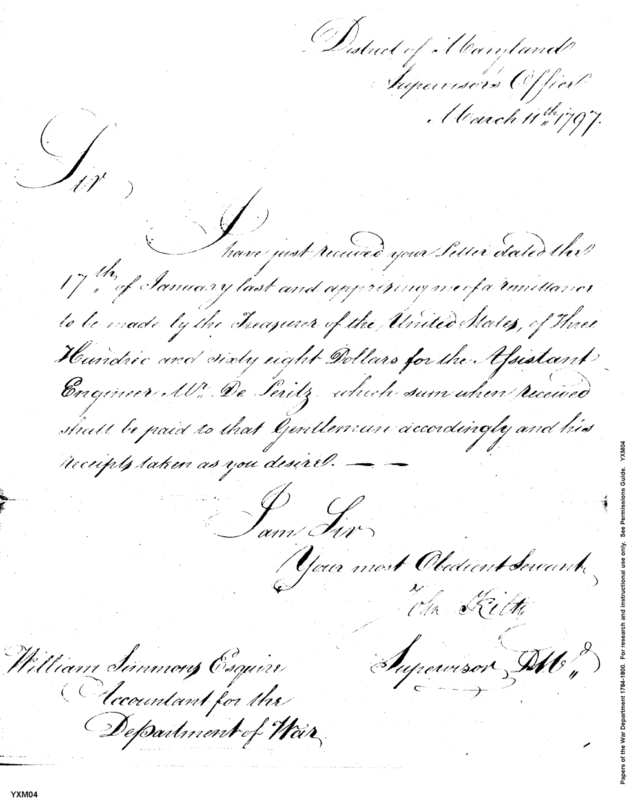 District of Maryland
Supervisor's Office
March 11th 1797.
Sir
I have just received your Letter dated the
17th of January last and apprizing me of a remittance
to be made by the Treasurer of the United States, of Three
Hundred and sixty eight Dollars for the Assistant
Engineer Mr. De Peritz which sum when received
shall be paid to that Gentleman accordingly and his
receipts taken as you desire. — —
I am Sir
Your most Obedient Servant
John Kilty
Supervisor, D Md
William Simmons Esquire
Accountant for the
Department of War
Papers of the War Department 1784-1800. For research and instructional use only. See Permissions Guide. YXM04
YXM04